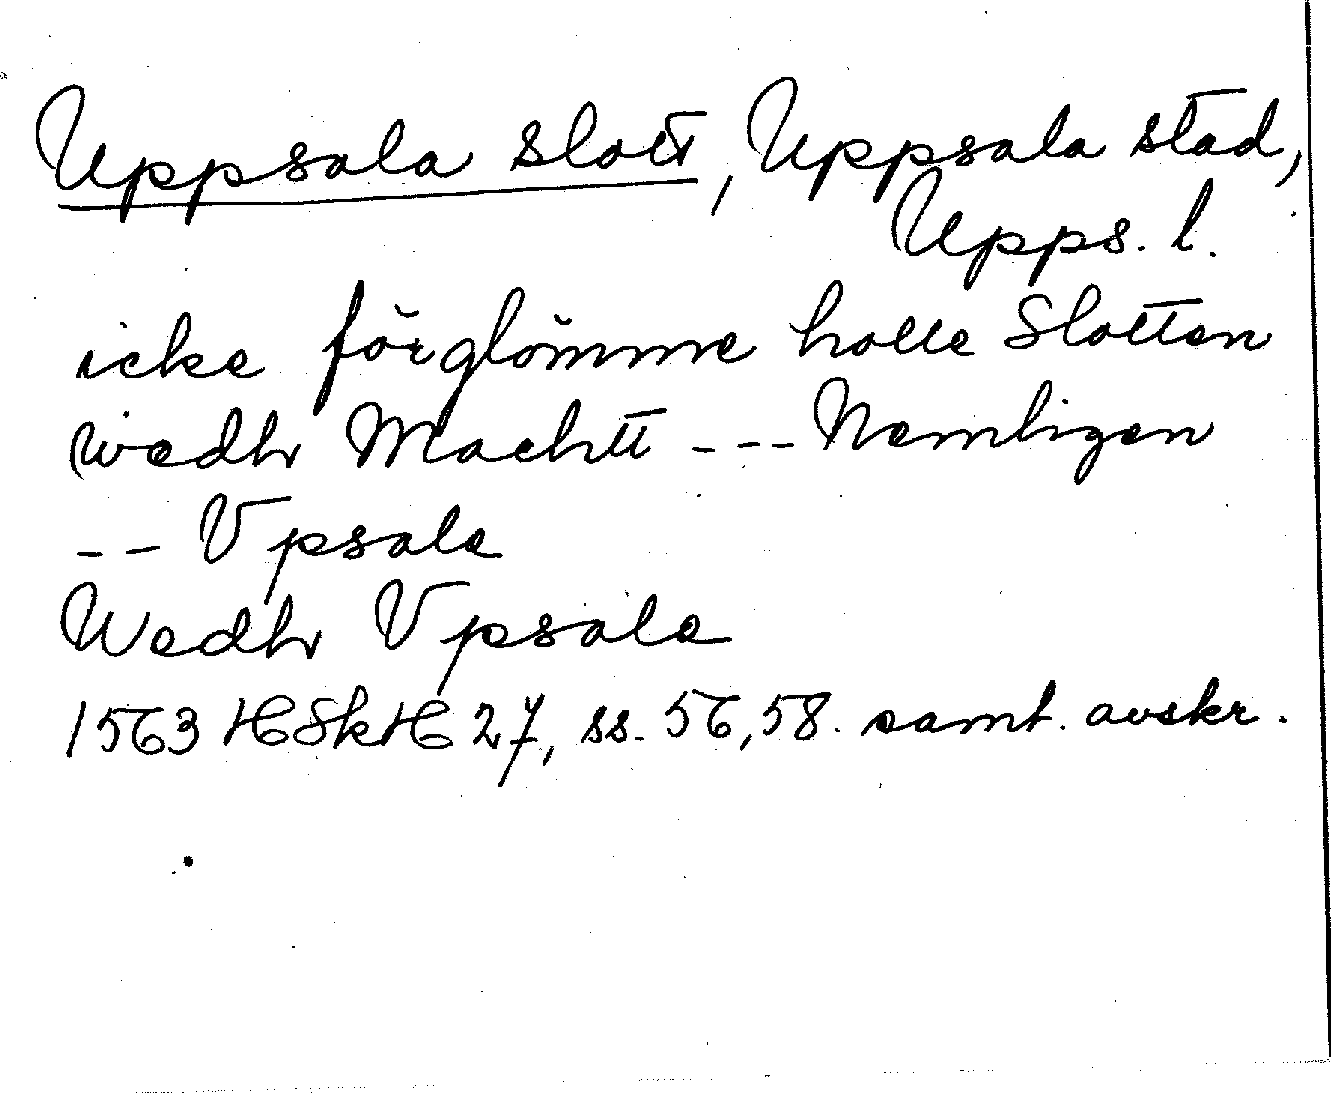 Uppsala slott, Uppsala stad,
Upps. l.
icke förglömme holle Slotten
wedh Machtt --- Nemligen
-- Vpsale
Wedh Vpsale
1563 HSkH 27, ss. 56, 58. samt. avskr.